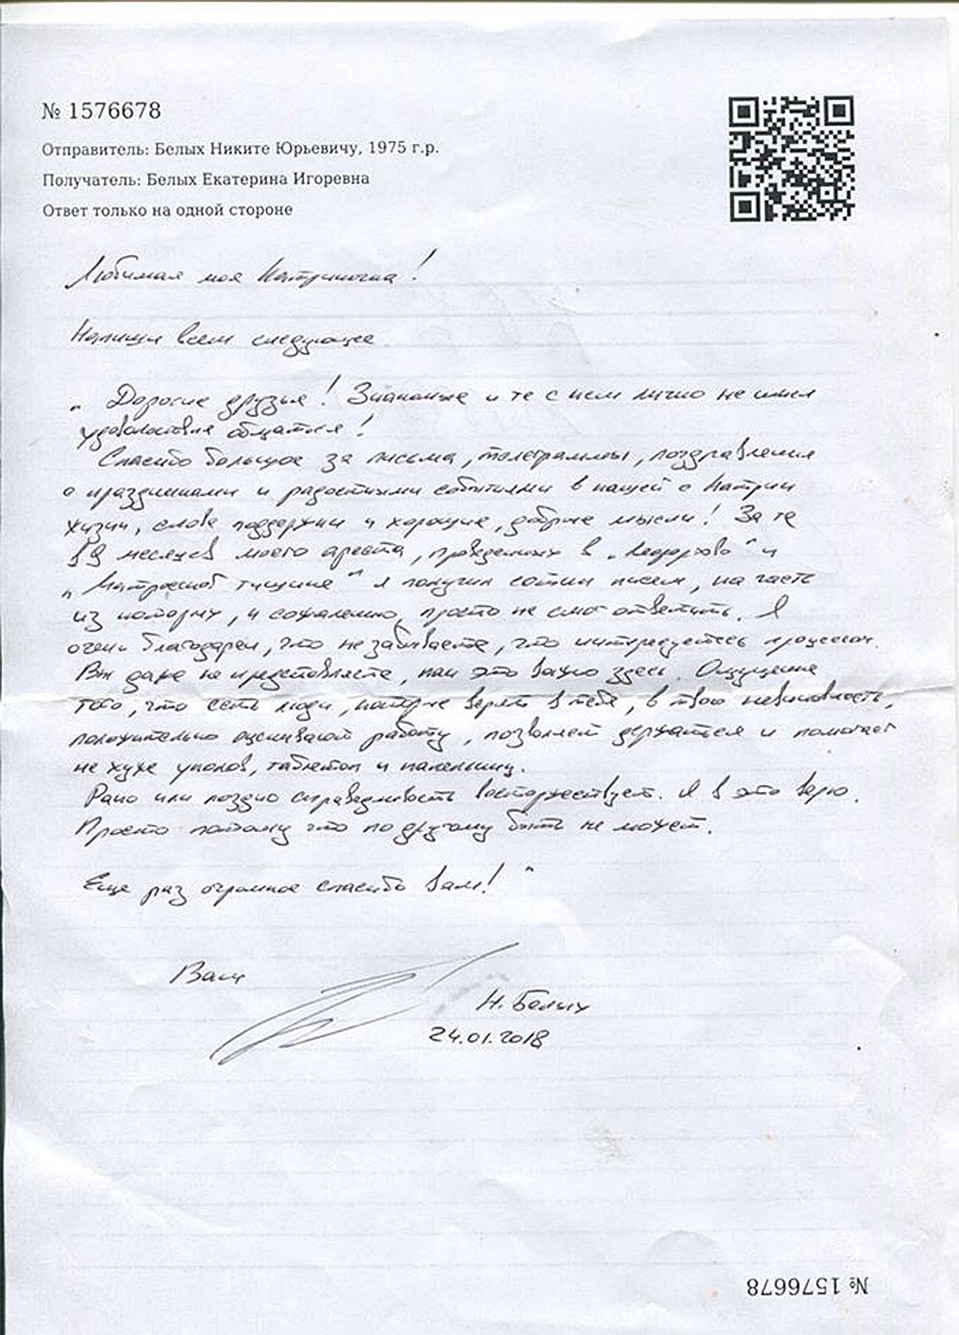 № 1576678
Отправитель: Белых Никите Юрьевичу, 1975 г.р.
Получатель: Белых Екатерина Игоревна
Ответ только на одной стороне
Любимая моя Катриночка!
Напиши всем следующее
„Дорогие друзья! Знакомые и те с кем лично не имел
удовольствия общаться!
Спасибо большое за письма, телеграммы, поздравления
с праздниками и радостными событиями в нашей с Катрин
жизни, слова поддержки и хорошие, добрые мысли! За те
19 месяцев моего ареста, проведенных в „Лефортово" и
„Матросской тишине" я получил сотни писем, на часть
из которых, к сожалению, просто не смог ответить. Я
очень благодарен, что не забываете, что интересуетесь процессом.
Вы даже не представляете, как это важно здесь. Ощущение
того, что есть люди, которые верят в тебя, в твою невиновность,
положительно оценивают работу, позволяет держаться и помогает
не хуже уколов, таблеток и капельниц.
Рано или поздно справедливость восторжествует. Я в это верю.
Просто потому что по другому быть не может.
Еще раз огромное спасибо Вам!"
Ваш
Н. Белых
24.01.2018
№ 1576678